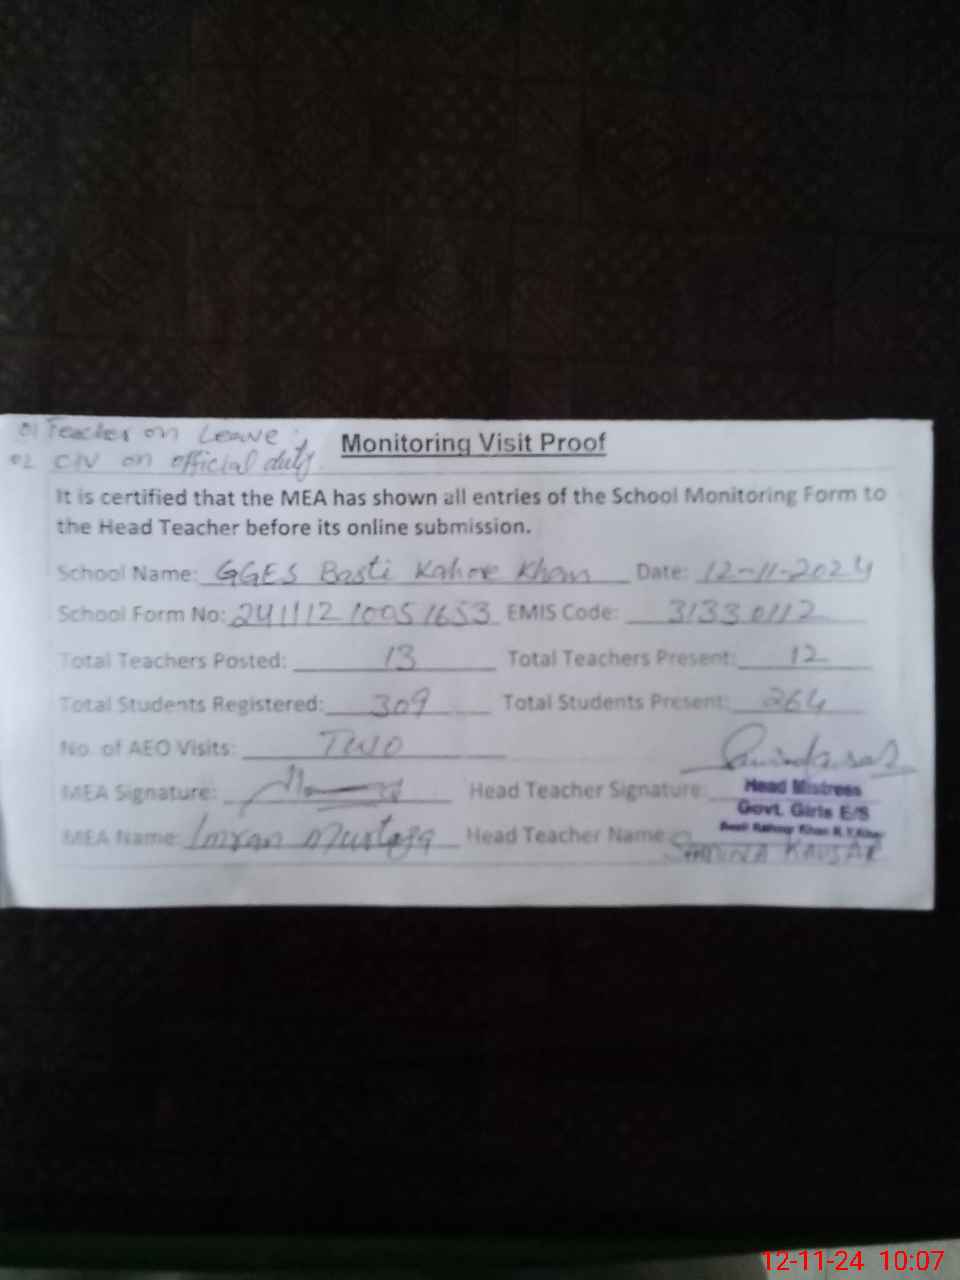 01 Teacher on Leave.
02 CIV on official duty.
Monitoring Visit Proof
It is certified that the MEA has shown all entries of the School Monitoring Form to
the Head Teacher before its online submission.
School Name: GGES Basti Kahore Khan Date: 12-11-2024
School Form No: 241112 10051653 EMIS Code: 31330112
Total Teachers Posted: 13 Total Teachers Present: 12
Total Students Registered: 309 Total Students Present: 264
No. of AEO Visits: Two
MEA Signature: Head Teacher Signature:
Head Mistress
Govt. Girls E/S
MEA Name: Imran Mustafa Head Teacher Name: KAUSAR
12-11-24 10:07